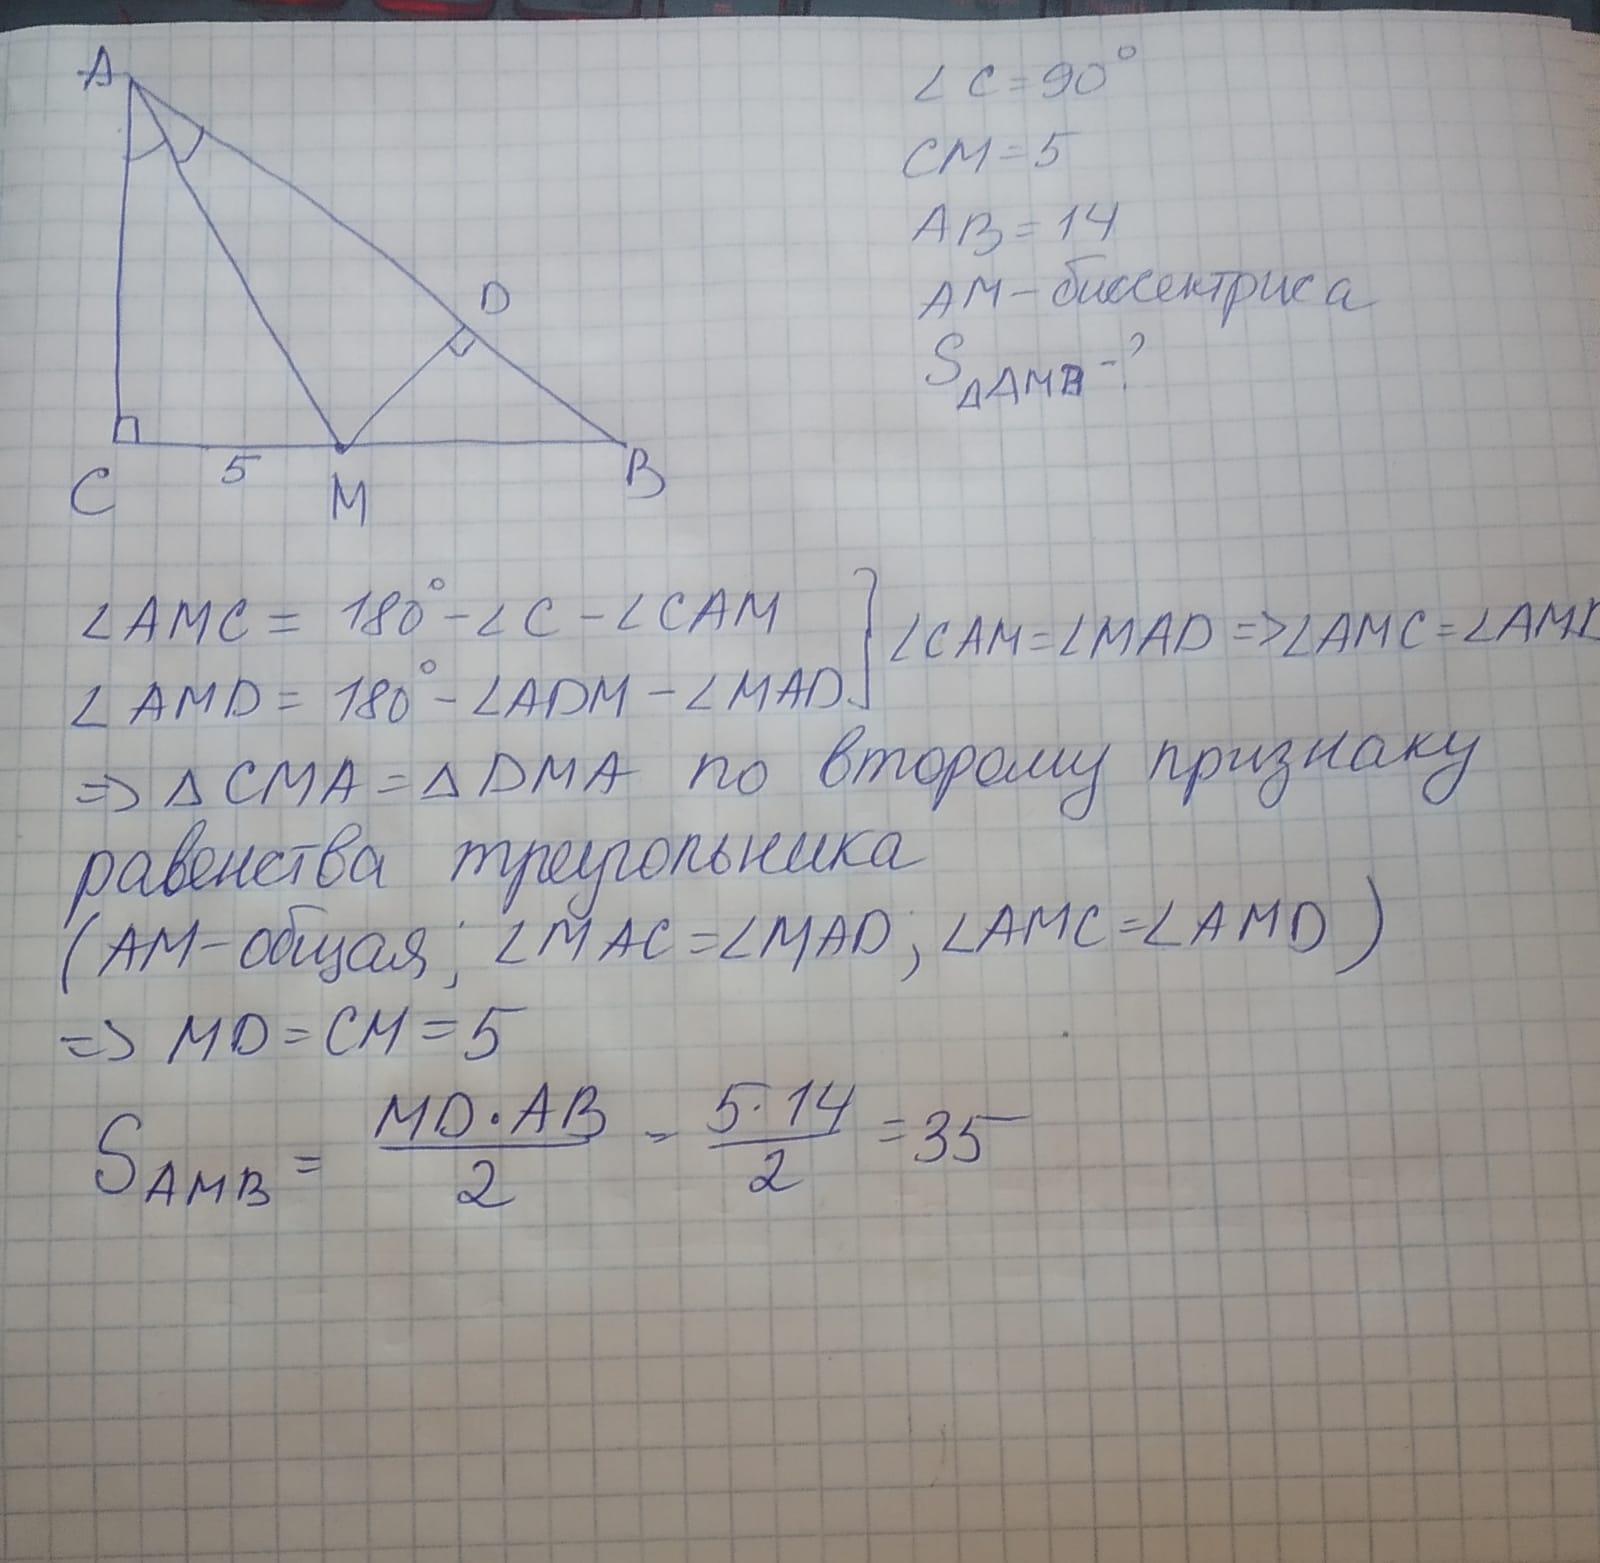 A
D
C
5
M
B
∠C=90°
CM=5
AB=14
AM-биссектриса
S△AMB-?
∠AMC= 180°-∠C-∠CAM
∠AMD= 180°-∠ADM-∠MAD
} ∠CAM=∠MAD=>∠AMC=∠AMD
=> △CMA=△DMA по второму признаку
равенства треугольника
(AM-общая; ∠MAC=∠MAD; ∠AMC=∠AMD)
=> MD=CM=5
S AMB = MD·AB/2 = 5·14/2 =35